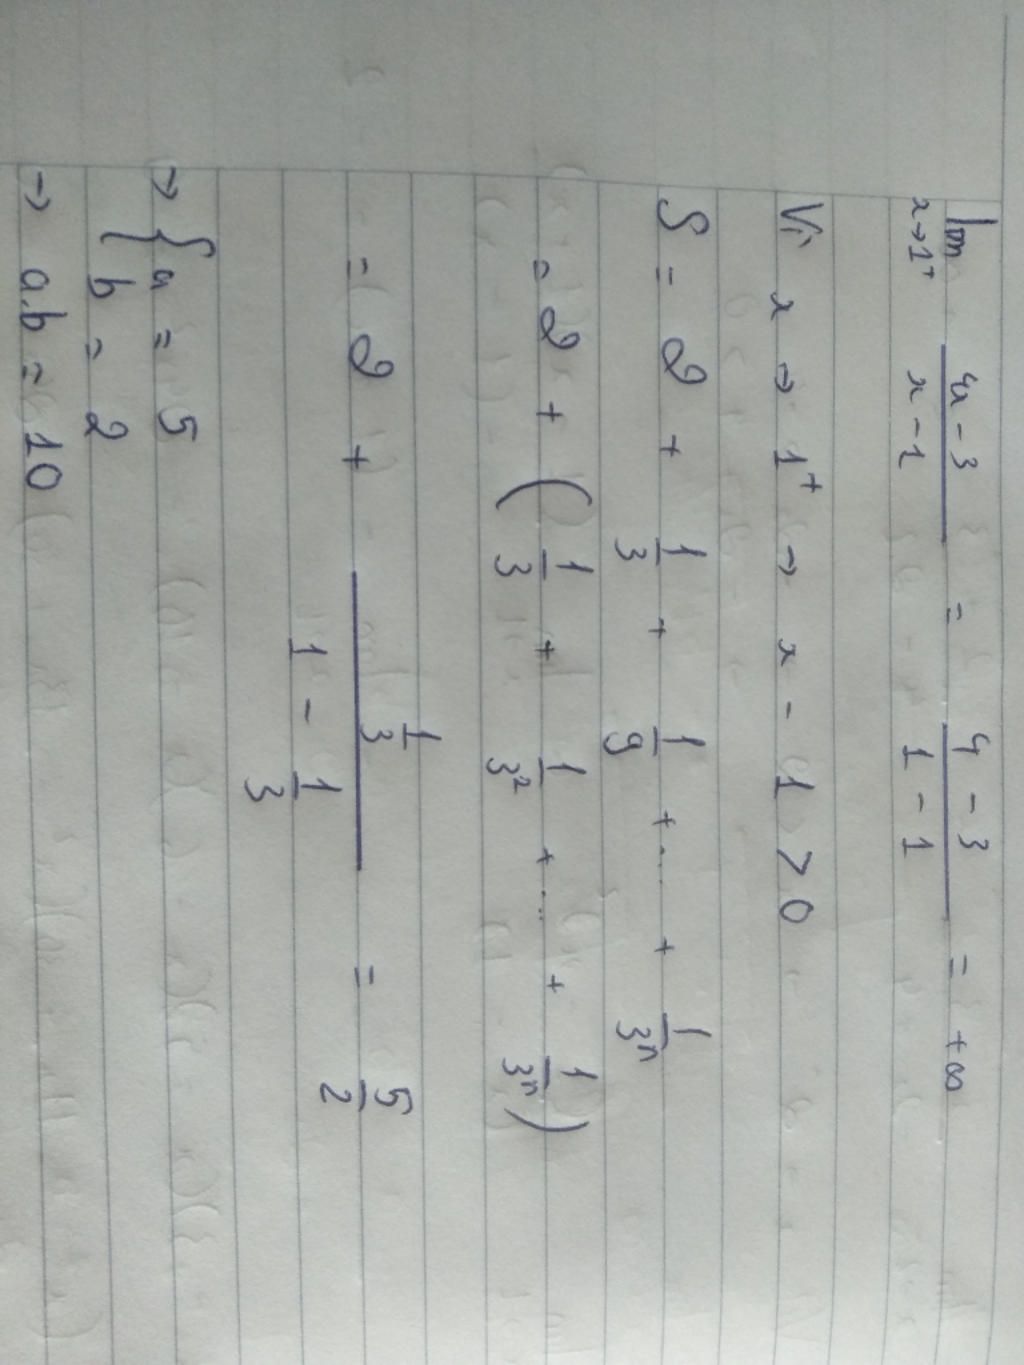 lim x→1⁺ (4x - 3)/(x - 1) = (4 - 3)/(1 - 1) = +∞
Vì x → 1⁺ → x - 1 > 0
S = 2 + 1/3 + 1/9 + ... + 1/3ⁿ
= 2 + (1/3 + 1/3² + ... + 1/3ⁿ)
= 2 + (1/3)/(1 - 1/3) = 5/2
→ { a = 5
b = 2
→ a.b = 10